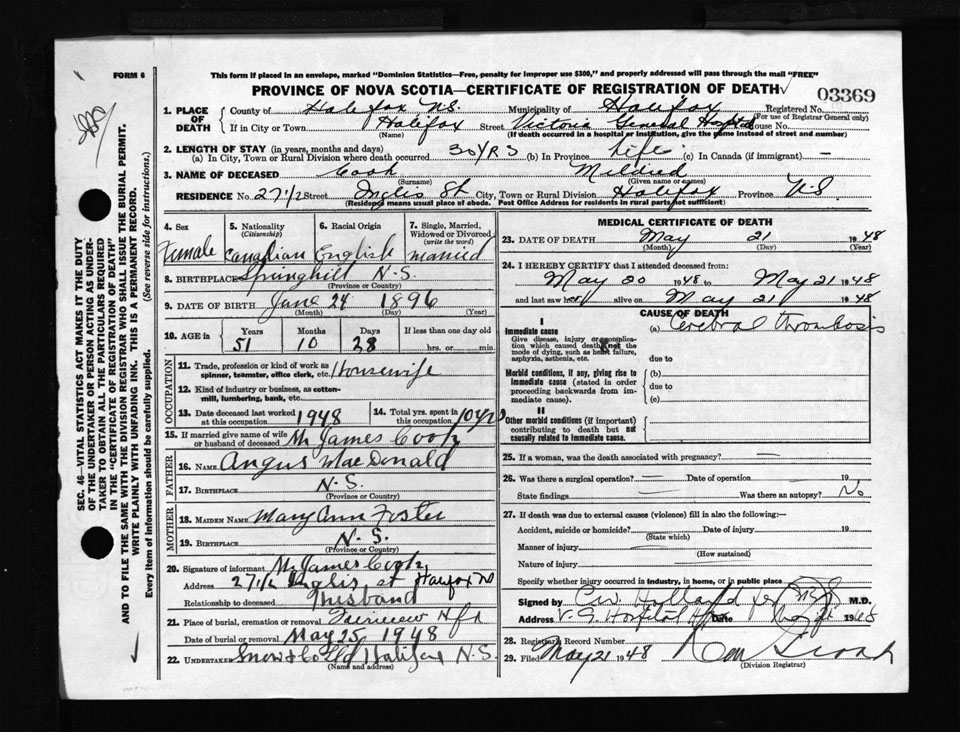 FORM 6
This form if placed in an envelope, marked "Dominion Statistics—Free, penalty for improper use $300," and properly addressed will pass through the mail "FREE"
PROVINCE OF NOVA SCOTIA—CERTIFICATE OF REGISTRATION OF DEATH
03369
1. PLACE OF DEATH County of Halifax N.S. Municipality of Halifax Registered No. (For use of Registrar General only)
If in City or Town Halifax Street Victoria General Hospital House No.
(Name) (If death occurred in a hospital or institution, give the name instead of street and number)
2. LENGTH OF STAY (in years, months and days)
(a) In City, Town or Rural Division where death occurred 30 YRS (b) In Province Life (c) In Canada (if immigrant) —
3. NAME OF DECEASED Cook Mildred
(Surname) (Given name or names)
RESIDENCE No. 27 1/2 Street Inglis St City, Town or Rural Division Halifax Province N S
(Residence means usual place of abode. Post Office Address for residents in rural parts not sufficient)
4. Sex 5. Nationality (Citizenship) 6. Racial Origin 7. Single, Married, Widowed or Divorced (write the word)
Female Canadian English Married
8. BIRTHPLACE Springhill N.S.
(Province or Country)
9. DATE OF BIRTH June 24 1896
(Month) (Day) (Year)
10. AGE in Years Months Days If less than one day old
51 10 28 hrs. or min.
OCCUPATION
11. Trade, profession or kind of work as spinner, teamster, office clerk, etc. Housewife
12. Kind of industry or business, as cotton-mill, lumbering, bank, etc.
13. Date deceased last worked at this occupation 1948 14. Total yrs. spent in this occupation 10 yrs
15. If married give name of wife or husband of deceased Mr James Cook
FATHER
16. NAME Angus MacDonald
17. BIRTHPLACE N.S.
(Province or Country)
MOTHER
18. MAIDEN NAME Mary Ann Foster
19. BIRTHPLACE N.S.
(Province or Country)
20. Signature of informant Mr James Cook
Address 27 1/2 Inglis st Halifax NS
Relationship to deceased Husband
21. Place of burial, cremation or removal Fairview Hfx
Date of burial or removal May 25, 1948
22. UNDERTAKER Snow & Co Ltd Halifax N.S.
(Name and address)
MEDICAL CERTIFICATE OF DEATH
23. DATE OF DEATH May 21 1948
(Month) (Day) (Year)
24. I HEREBY CERTIFY that I attended deceased from:
May 20 1948 to May 21 1948
and last saw her alive on May 21 1948
CAUSE OF DEATH
I
Immediate cause (a) Cerebral thrombosis
Give disease, injury or complication which caused death, not the mode of dying, such as heart failure, asphyxia, asthenia, etc. due to
Morbid conditions, if any, giving rise to immediate cause (stated in order proceeding backwards from immediate cause). (b) due to (c)
II
Other morbid conditions (if important) contributing to death but not causally related to immediate cause.
25. If a woman, was the death associated with pregnancy? —
26. Was there a surgical operation? — Date of operation — 19
State findings — Was there an autopsy? No
27. If death was due to external causes (violence) fill in also the following:—
Accident, suicide or homicide? Date of injury 19
(State which)
Manner of injury
(How sustained)
Nature of injury
Specify whether injury occurred in industry, in home, or in public place
Signed by C.W. Holland M.D.
Address V. G. Hospital Hfx Date May 21 1948
28. Registrar's Record Number
29. Filed May 21 1948
(Division Registrar)
SEC. 46—VITAL STATISTICS ACT MAKES IT THE DUTY OF THE UNDERTAKER OR PERSON ACTING AS UNDERTAKER TO OBTAIN ALL THE PARTICULARS REQUIRED IN THE "CERTIFICATE OF REGISTRATION OF DEATH" AND TO FILE THE SAME WITH THE DIVISION REGISTRAR WHO SHALL ISSUE THE BURIAL PERMIT.
WRITE PLAINLY WITH UNFADING INK. THIS IS A PERMANENT RECORD.
Every item of information should be carefully supplied. (See reverse side for instructions.)